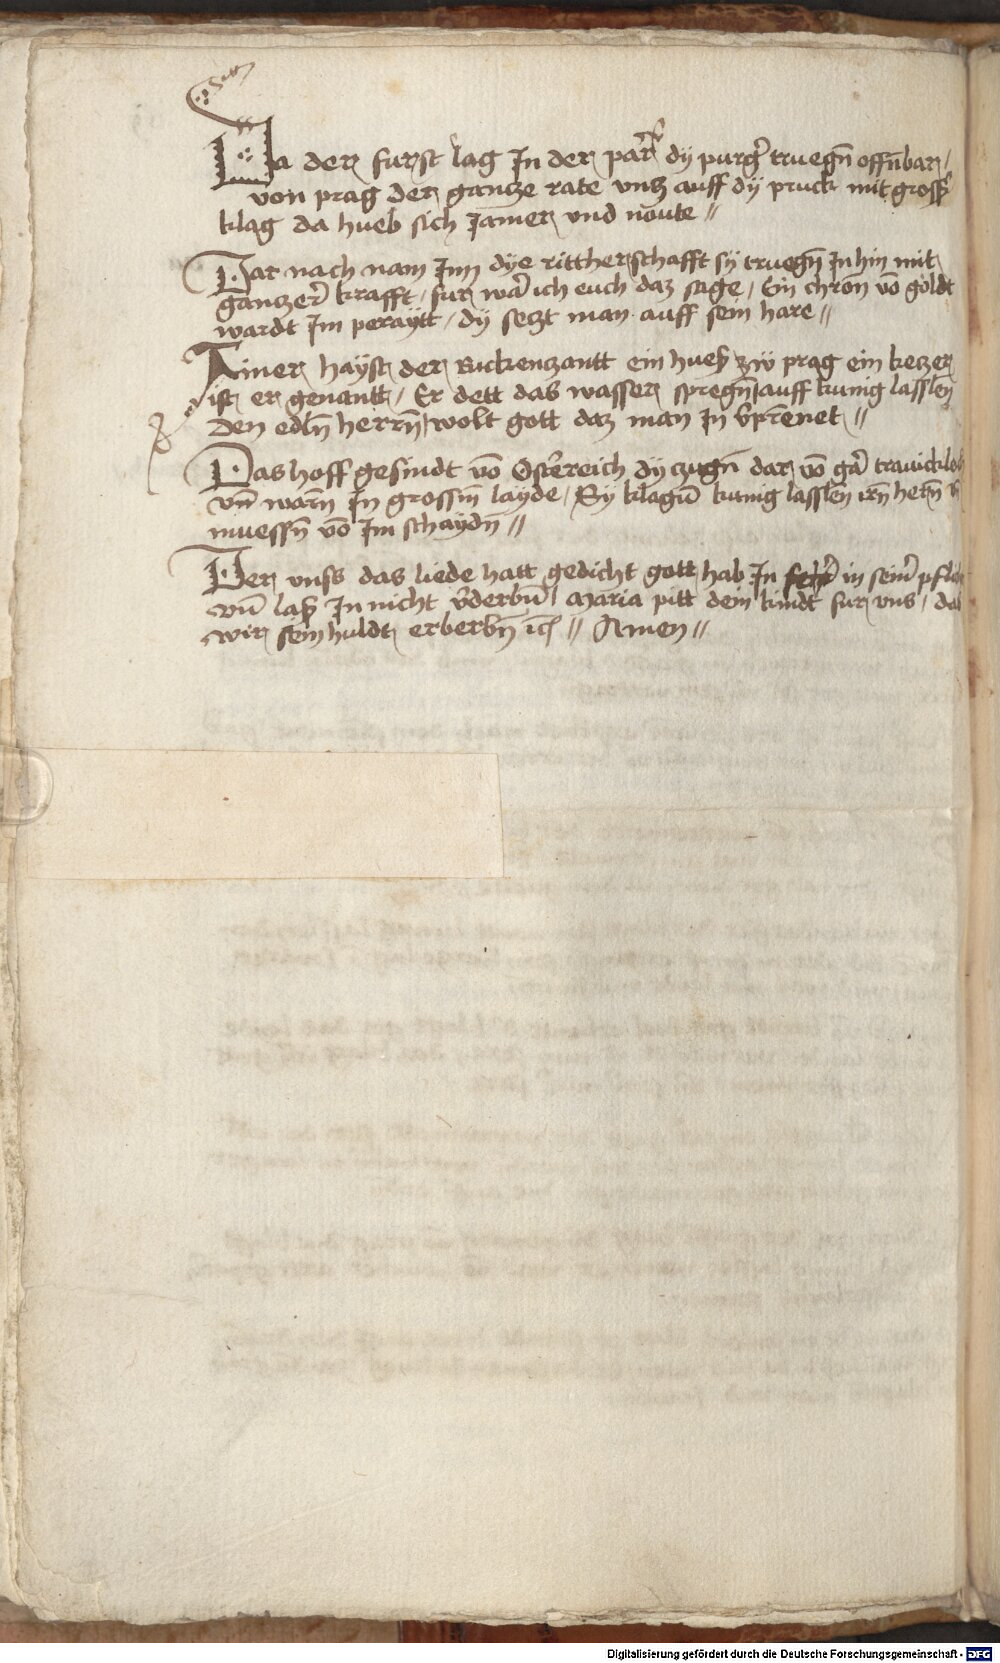 Da der furst lag In der par dy purg̃ truegñ offñbar /
von prag der gancze rate vncz auff dy pruck mit gross̃
klag da hueb sich Jamer vnd noute //
Dar nach nam Inn dye rittherschafft sy truegñ In hin mit
ganczer̃ krafft / fur war̃ ich euch daz sage / Ein chron võ goldt
wardt Im peraytt / dy seczt man auff sein hare //
Ainer hayst der Ruckenzantt ein hueß zw prag ein keczer
ist er genantt / Er dett das wasser spregñ auff kunig lasslen
Den edlñ herrñ wolt gott daz man In v̄prennet //
Das hoff gesindt võ Osterreich dy czugñ dar võ gar̃
vñ warñ In grossm̃ layde / Sy klagñ kunig lasslen irñ herñ
muessñ võ Im schaydñ //
Der vnss das liede hatt gedicht gott hab In in seiñ
vñ laß In nicht v̄derbñ / Maria pitt dein kindt fur vns / das
wir sein huldt erberbñ ich // Amen //
Digitalisierung gefördert durch die Deutsche Forschungsgemeinschaft - DFG